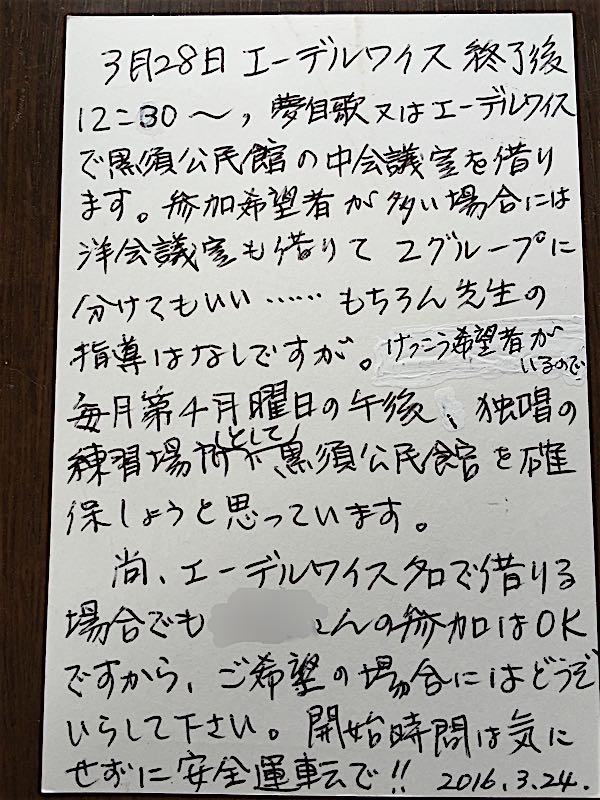 3月28日 エーデルワイス 終了後
12:30〜，夢自歌又はエーデルワイス
で黒須公民館の中会議室を借り
ます。参加希望者が多い場合には
洋会議室も借りて 2グループに
分けてもいい……もちろん先生の
指導はなしですが。けっこう希望者が
いるので
毎月第4月曜日の午後、独唱の
練習場所として、黒須公民館を確
保しようと思っています。
尚、エーデルワイス名で借りる
場合でも んの参加はOK
ですから、ご希望の場合にはどうぞ
いらして下さい。開始時間は気に
せずに安全運転で!! 2016.3.24.